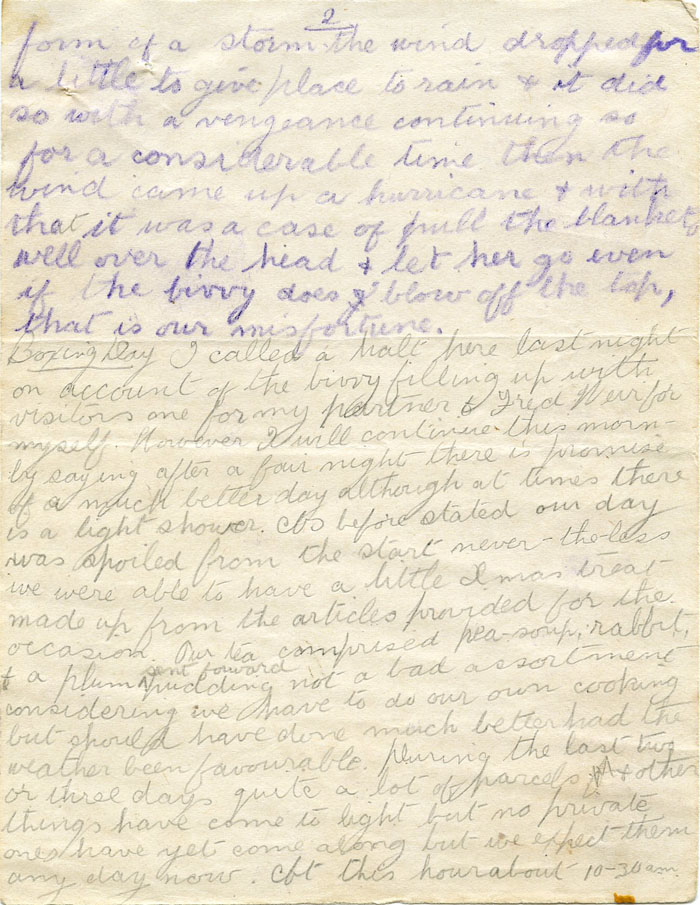 2
form of a storm the wind dropped for
a little to give place to rain & it did
so with a vengeance continuing so
for a considerable time then the
wind came up a hurricane & with
that it was a case of pull the blankets
well over the head & let her go even
if the bivvy does blow off the top,
that is our misfortune.
Boxing Day I called a halt here last night
on account of the bivvy filling up with
visitors one for my partner & Fred Weir for
myself. However I will continue this morn-
by saying after a fair night there is promise
of a much better day although at times there
is a light shower. As before stated our day
was spoiled from the start never-the-less
we were able to have a little Xmas treat
made up from the articles provided for the
occasion. Our tea comprised pea-soup, rabbit,
& a plum pudding sent forward not a bad assortment
considering we have to do our own cooking
but should have done much better had the
weather been favourable. During the last two
or three days quite a lot of parcels & other
things have come to light but no private
ones have yet come along but we expect them
any day now. At this hour about 10-30 am.